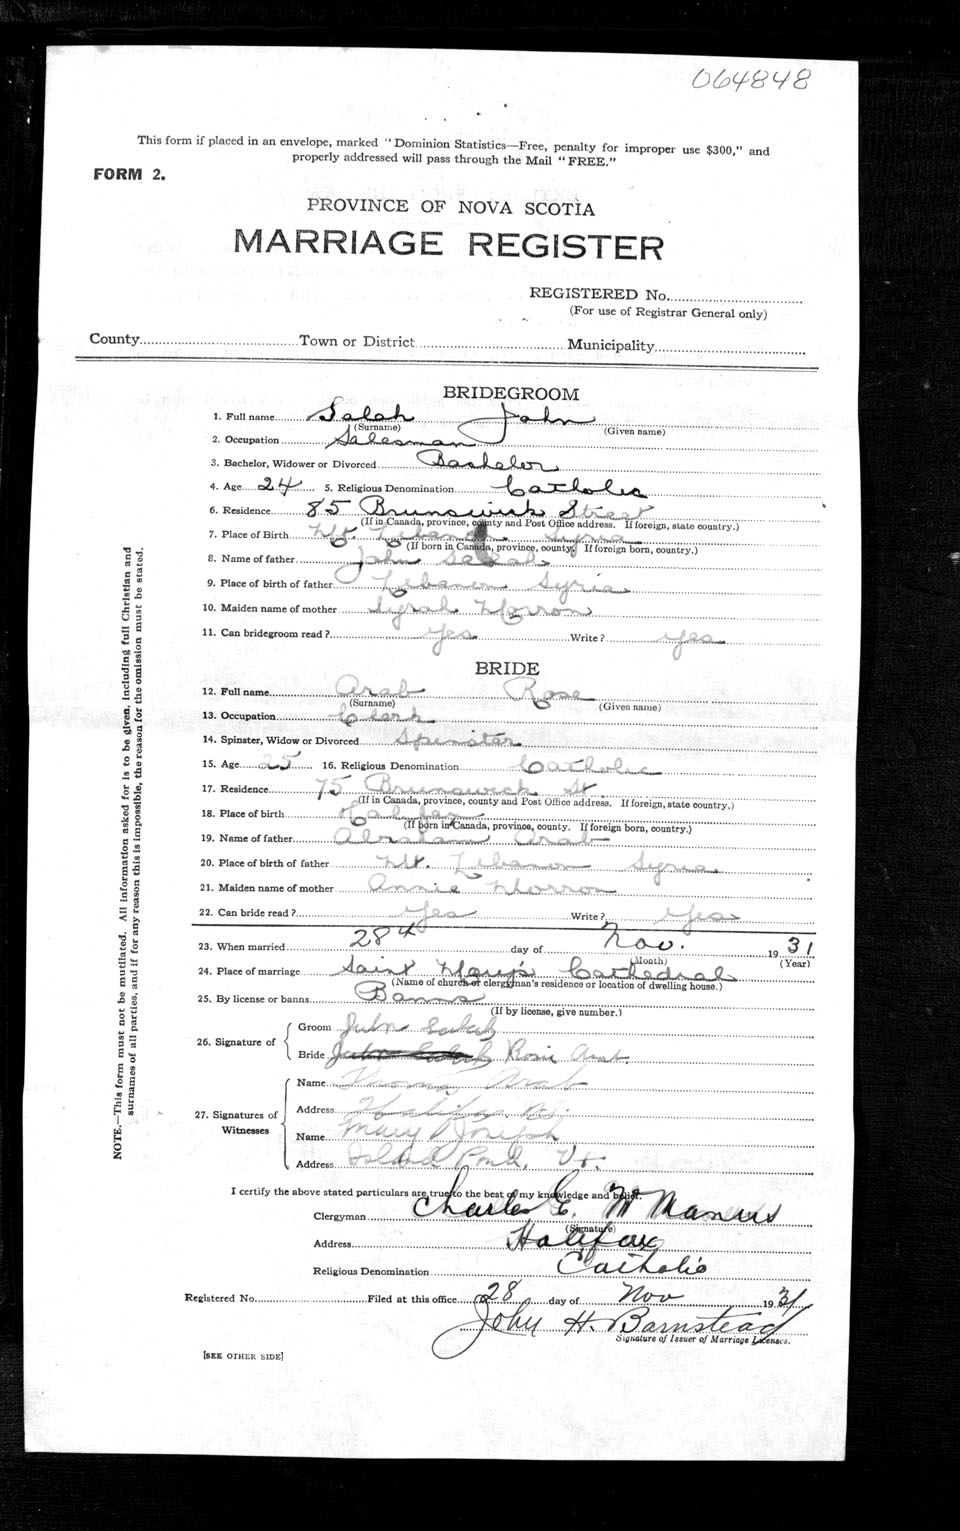 064848
This form if placed in an envelope, marked "Dominion Statistics—Free, penalty for improper use $300," and
properly addressed will pass through the Mail "FREE."
FORM 2.
PROVINCE OF NOVA SCOTIA
MARRIAGE REGISTER
REGISTERED No.
(For use of Registrar General only)
County Town or District Municipality
BRIDEGROOM
1. Full name Salah John
(Surname) (Given name)
2. Occupation Salesman
3. Bachelor, Widower or Divorced Bachelor
4. Age 24 5. Religious Denomination Catholic
6. Residence 85 Brunswick Street
(If in Canada, province, county and Post Office address. If foreign, state country.)
7. Place of Birth Mt. Lebanon Syria
(If born in Canada, province, county. If foreign born, country.)
8. Name of father John Salah
9. Place of birth of father Lebanon Syria
10. Maiden name of mother Morron
11. Can bridegroom read? Yes Write? Yes
BRIDE
12. Full name Arab Rose
(Surname) (Given name)
13. Occupation Clerk
14. Spinster, Widow or Divorced Spinster
15. Age 25 16. Religious Denomination Catholic
17. Residence 75 Brunswick St.
(If in Canada, province, county and Post Office address. If foreign, state country.)
18. Place of birth Halifax
(If born in Canada, province, county. If foreign born, country.)
19. Name of father Abraham Arab
20. Place of birth of father Mt. Lebanon Syria
21. Maiden name of mother Annie Morron
22. Can bride read? Yes Write? Yes
23. When married 28th day of Nov. 1931
(Month) (Year)
24. Place of marriage Saint Mary's Cathedral
(Name of church or clergyman's residence or location of dwelling house.)
25. By license or banns Banns
(If by license, give number.)
26. Signature of
Groom John Salah
Bride Rosie Arab.
27. Signatures of
Witnesses
Name Thomas Arab
Address Halifax, N.S.
Name Mary Joseph
Address Island Pond, Vt.
I certify the above stated particulars are true to the best of my knowledge and belief.
Clergyman Charles E. McManus
(Signature)
Address Halifax
Religious Denomination Catholic
Registered No. Filed at this office 28 day of Nov 1931
John H. Barnstead
Signature of Issuer of Marriage Licenses.
[SEE OTHER SIDE]
NOTE.—This form must not be mutilated. All information asked for is to be given, including full Christian and
surnames of all parties, and if for any reason this is impossible, the reason for the omission must be stated.